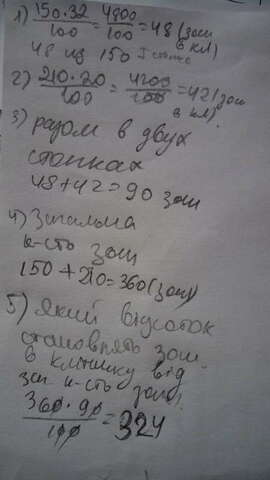 1) 150·32/100 = 4800/100 = 48 (зош в кл)
48 из 150 I стопка
2) 210·20/100 = 4200/100 = 42 (зош в кл)
3) разом в двух
стопках
48+42=90 зош
4) Загальна
к-сть зош
150+210=360(зош)
5) Який відсоток
становлять зош.
в клітинку від
заг к-сть зош.
360·90/100 = 324